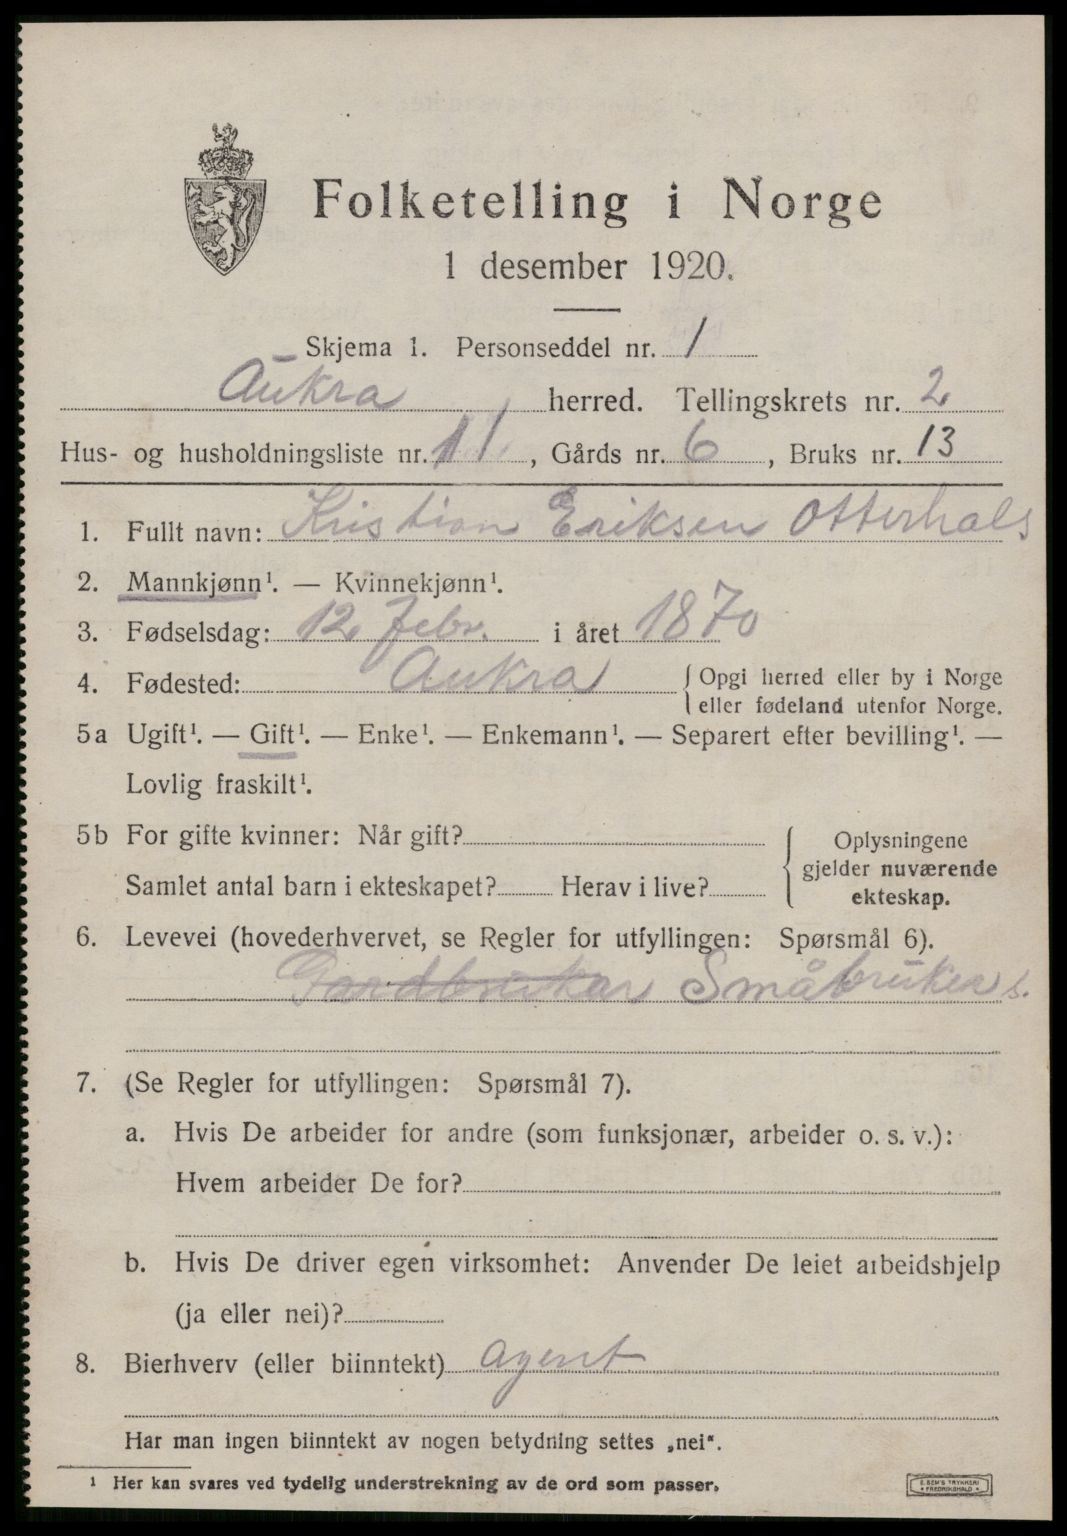 Folketelling i Norge
1 desember 1920.
Skjema 1. Personseddel nr. 1
Aukra herred. Tellingskrets nr. 2
Hus- og husholdningsliste nr. 11, Gårds nr. 6, Bruks nr. 13
1. Fullt navn: Kristian Eriksen Otterhals
2. Mannkjønn¹. — Kvinnekjønn¹.
3. Fødselsdag: 12 Febr. i året 1870
4. Fødested: Aukra { Opgi herred eller by i Norge
eller fødeland utenfor Norge.
5a Ugift¹. — Gift¹. — Enke¹. — Enkemann¹. — Separert efter bevilling¹. —
Lovlig fraskilt¹.
5b For gifte kvinner: Når gift?
Samlet antal barn i ekteskapet? Herav i live?
{ Oplysningene
gjelder nuværende
ekteskap.
6. Levevei (hovederhvervet, se Regler for utfyllingen: Spørsmål 6).
Gardbrukar Småbruker s.
7. (Se Regler for utfyllingen: Spørsmål 7).
a. Hvis De arbeider for andre (som funksjonær, arbeider o. s. v.):
Hvem arbeider De for?
b. Hvis De driver egen virksomhet: Anvender De leiet arbeidshjelp
(ja eller nei)?
8. Bierhverv (eller biinntekt) agent
Har man ingen biinntekt av nogen betydning settes „nei".
¹ Her kan svares ved tydelig understrekning av de ord som passer.
E. SEM'S TRYKKERI
• FREDRIKSHALD •